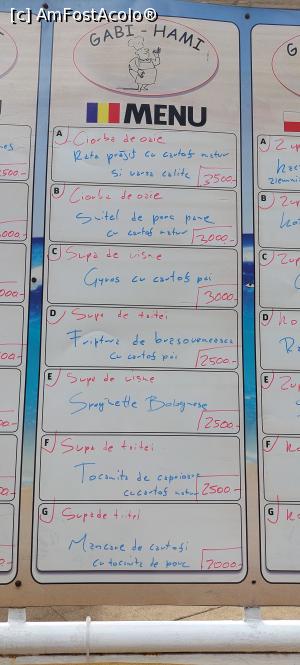 [c] AmFostAcolo®
GABI - HAMI
MENU
A Ciorba de oaie
Rata prajit cu cartof natur
si varza calita 3500.-
B Ciorba de oaie
Snitel de porc pane
cu cartof natur 3000.-
C Supa de visine
Gyros cu cartof pai
3000.-
D Supa de taitei
Friptura de brasoveneasca
cu cartof pai 2500.-
E Supa de visine
Spaghette Bolognese
2500.-
F Supa de taitei
Tocanita de
cu cartof natur 2500.-
G Supa de taitei
Mancare de cartofi
cu tocanita de porc 2000.-